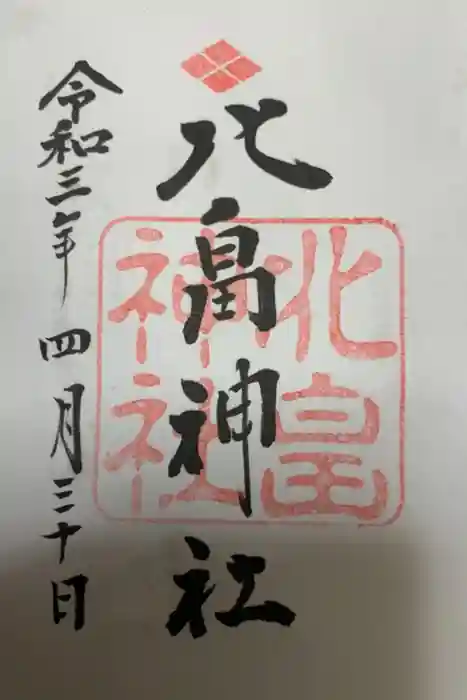 北畠神社
令和三年 四月三十日
北畠
神社